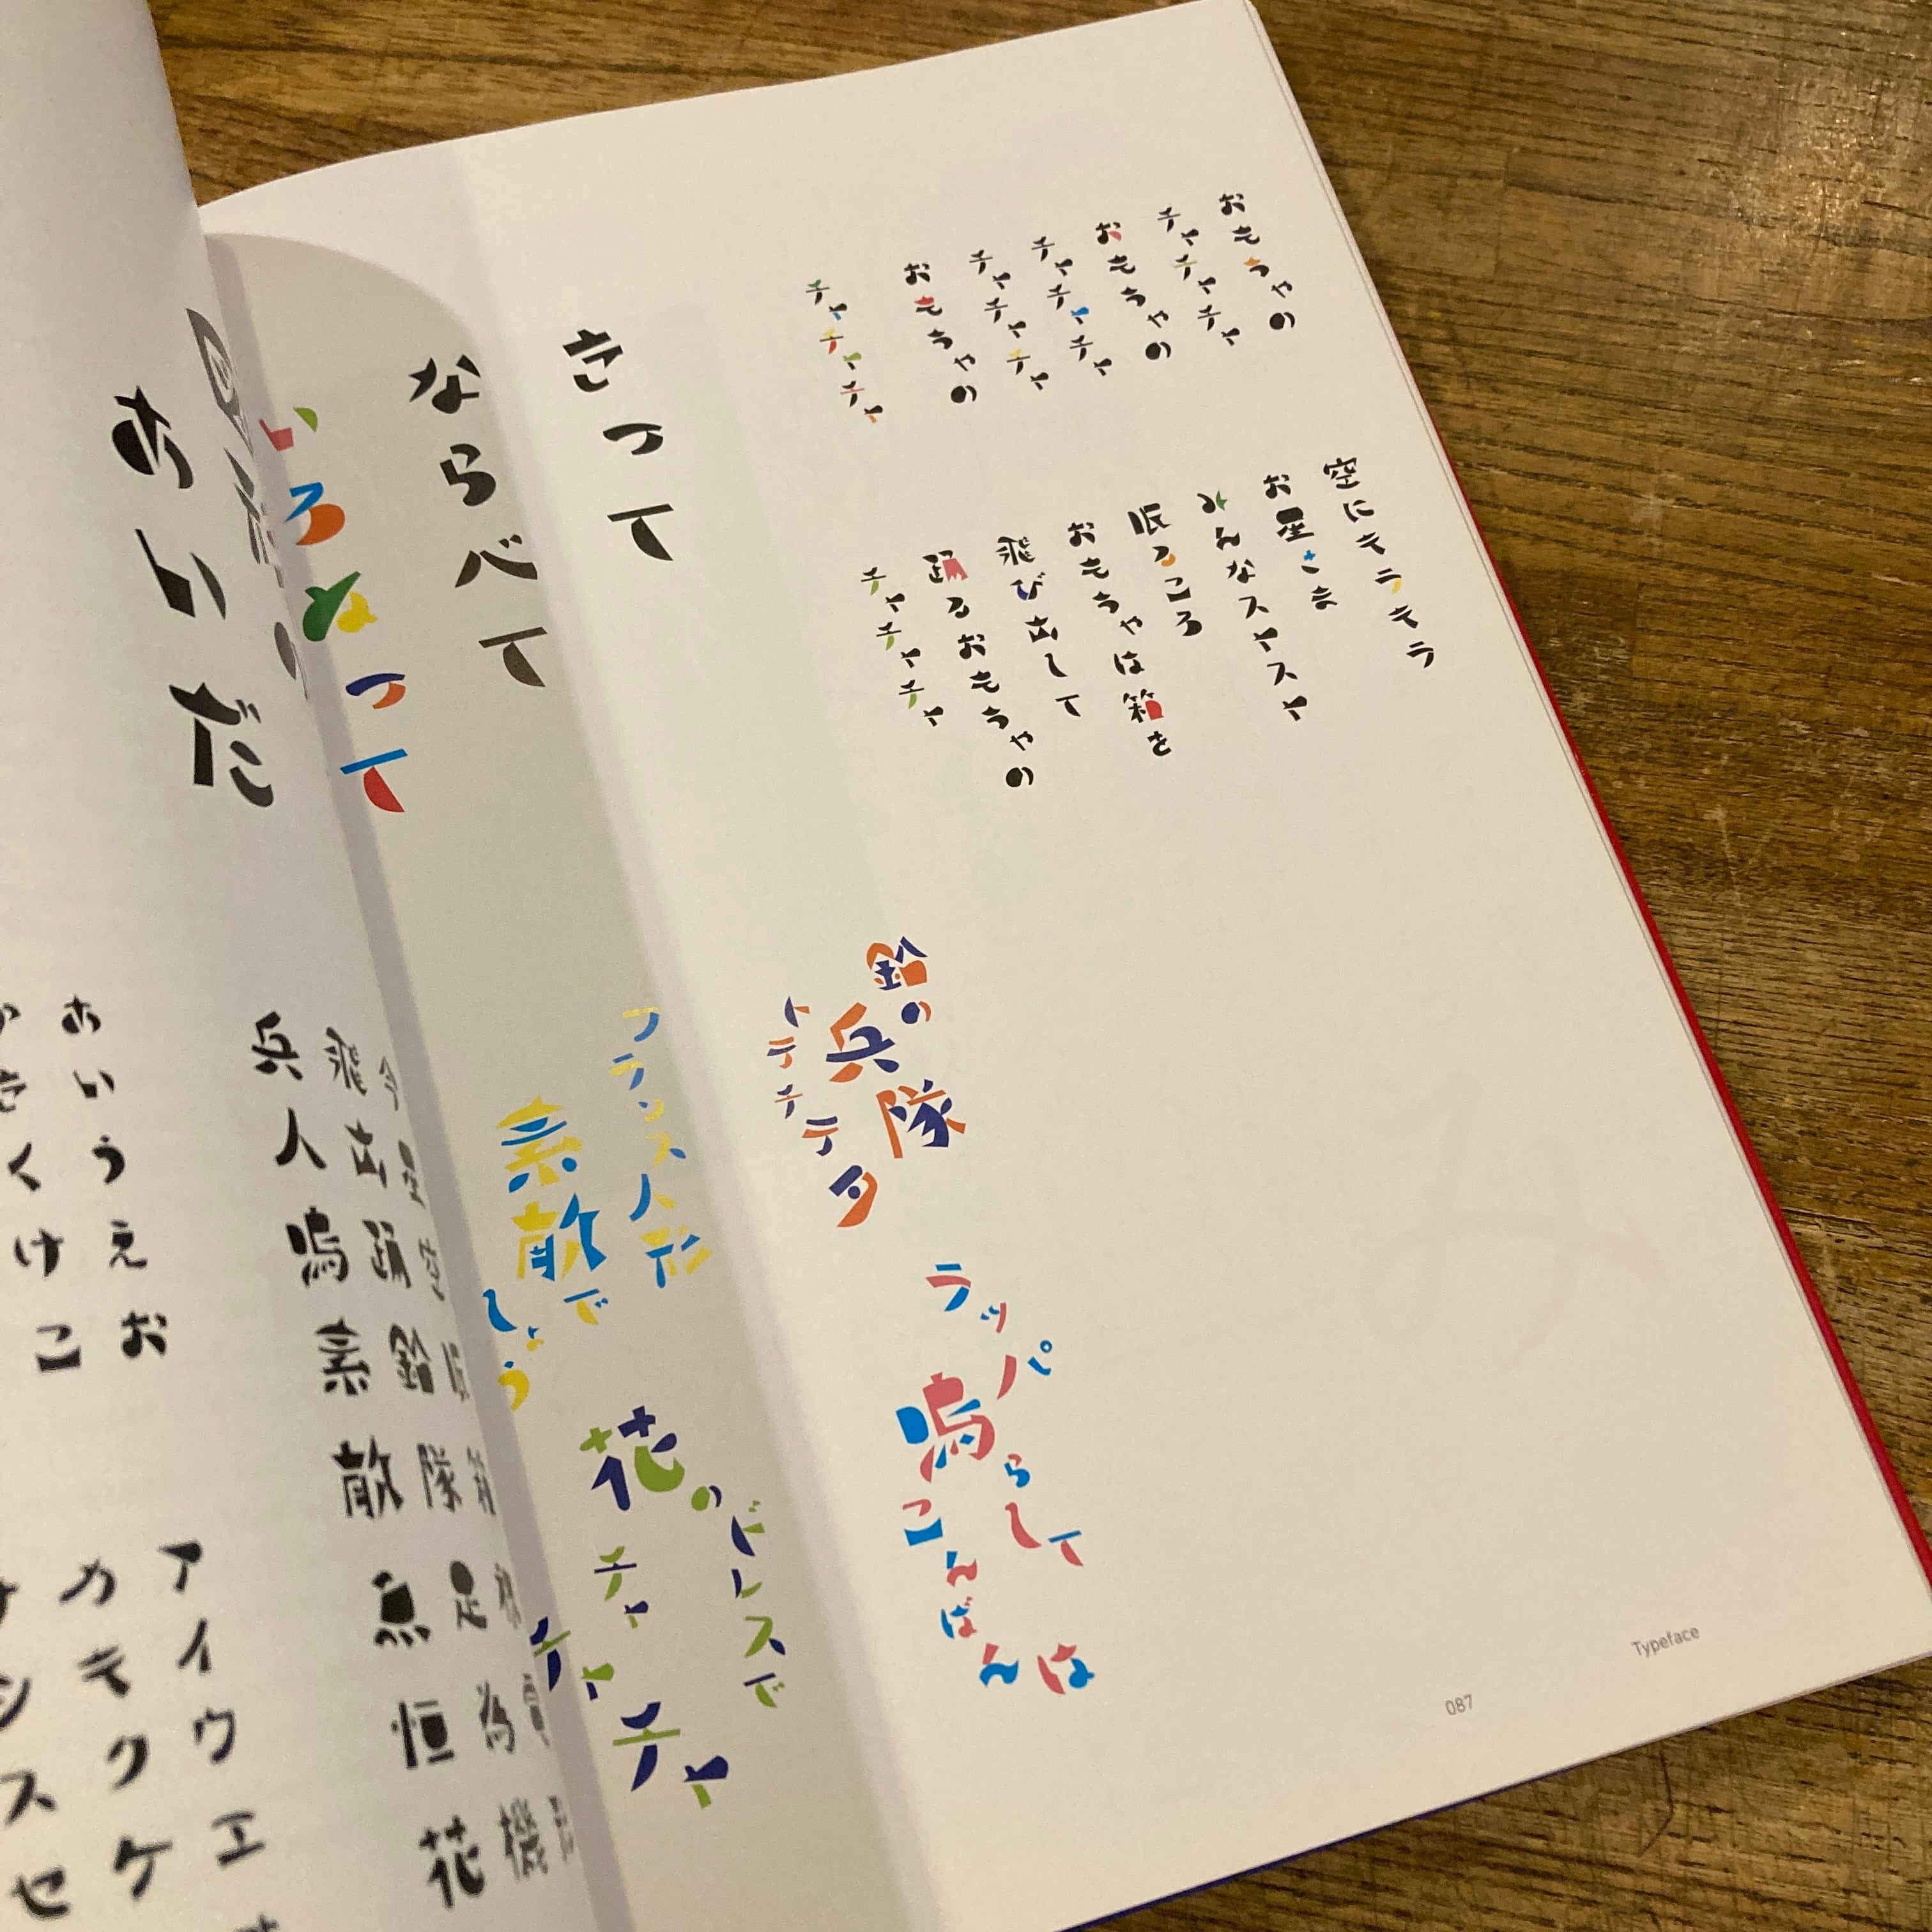 おもちゃの
チャチャチャ
おもちゃの
チャチャチャ
チャチャチャ
おもちゃの
チャチャチャ
空にキラキラ
お星さま
みんなスヤスヤ
眠るころ
おもちゃは箱を
飛び出して
踊るおもちゃの
チャチャチャ
きって
ならべて
いろぬって
鉛の
兵隊
トテチテタ
ラッパ
鳴らして
こんばんは
フランス人形
素敵で
しょう
花のドレスで
チャチャチャ
Typeface
087
あいだ
飛出踊鉛隊足為機
兵人鳴素敵魚恒花
あいうえお
きくけこ
アイウエ
カキクケ
シスセ